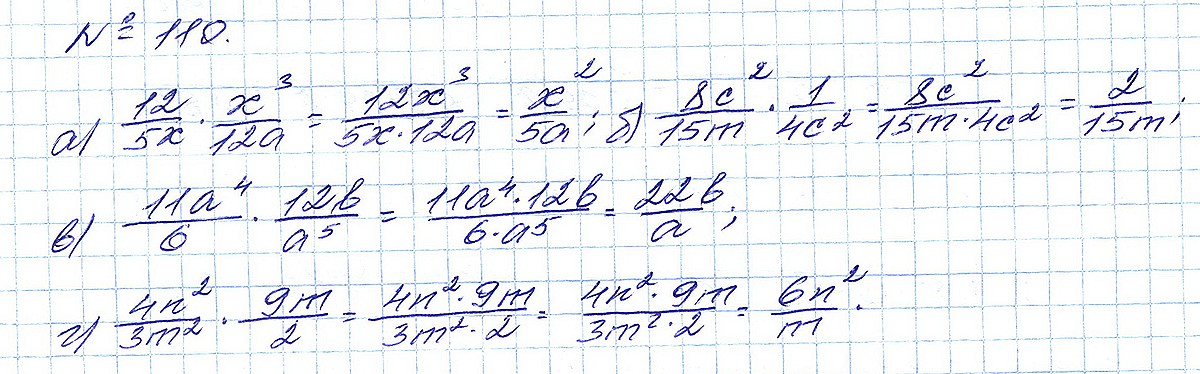 № 110.
а) 12/5x · x³/12a = 12x³/5x·12a = x²/5a; б) 8c²/15m · 1/4c² = 8c²/15m·4c² = 2/15m;
в) 11a⁴/6 · 12b/a⁵ = 11a⁴·12b/6·a⁵ = 22b/a;
г) 4n²/3m² · 9m/2 = 4n²·9m/3m²·2 = 4n²·9m/3m²·2 = 6n²/m.